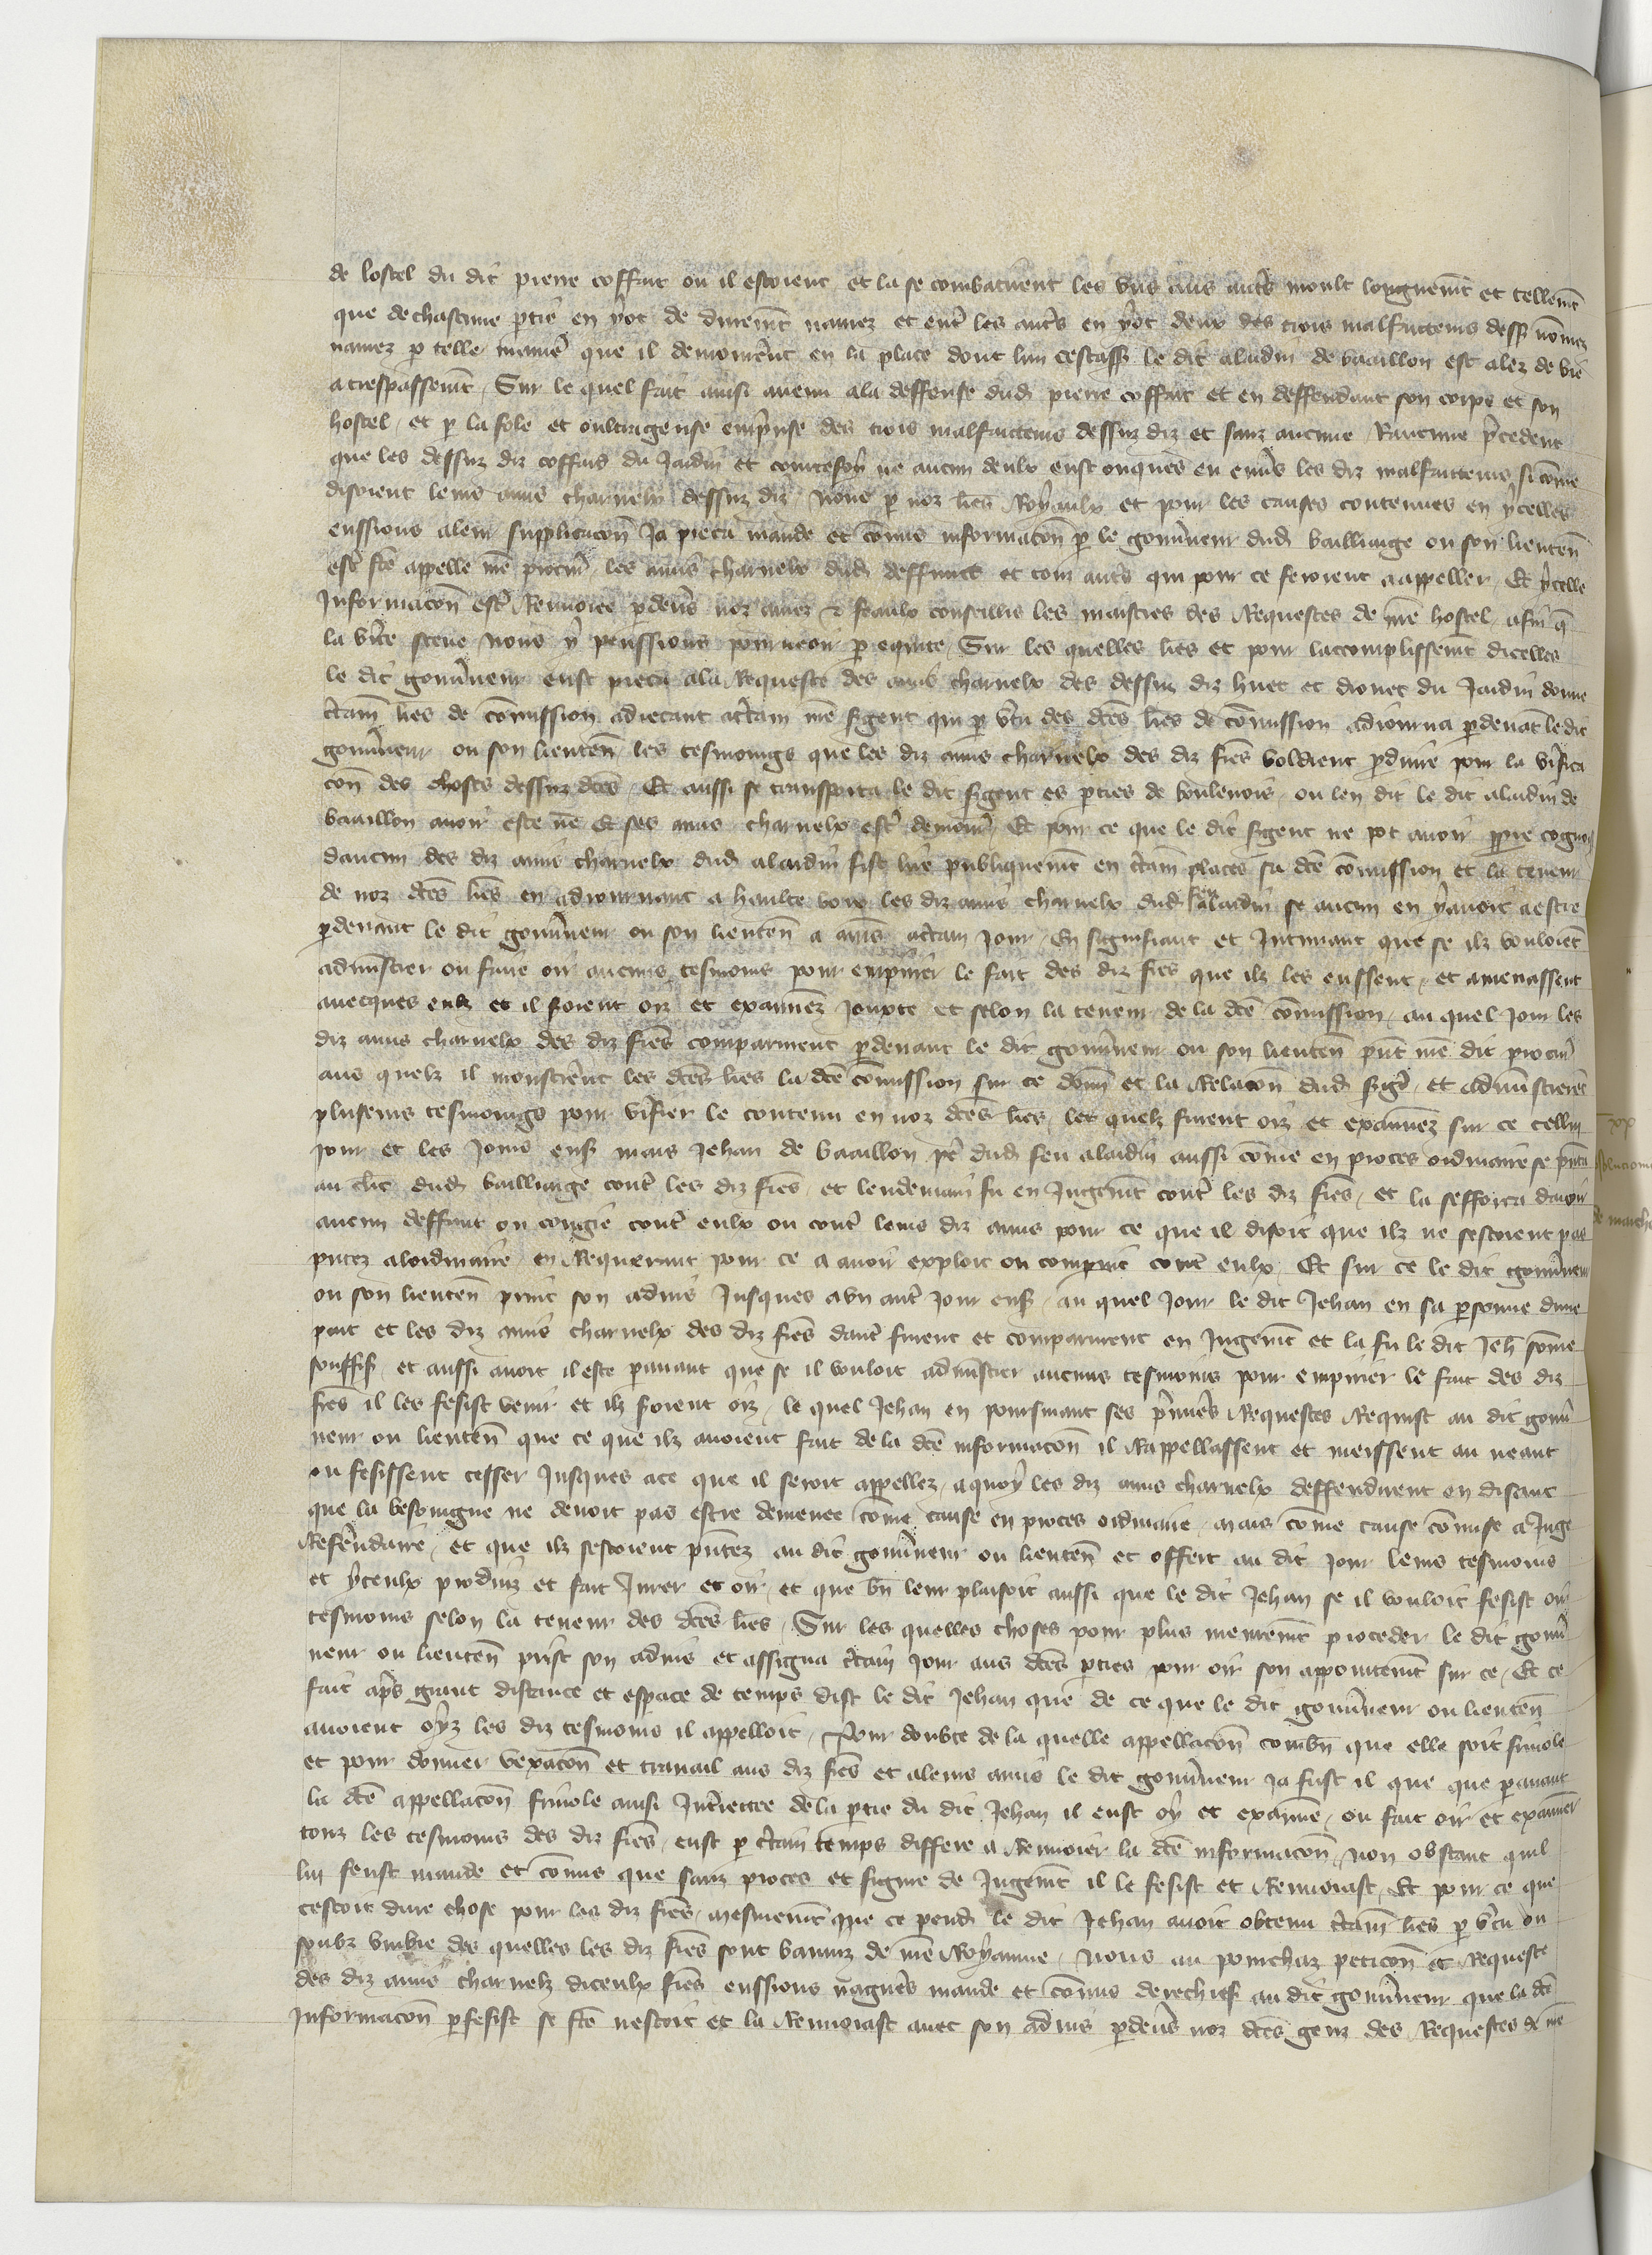 de lostel du dit pierre coffart ou il estoient et la se combatirent les uns aus aut̃s moult longuem̃t et tellem̃t
que de chascune p̱tie en y ot de durem̃t navrez et ent̃ les aut̃s en y ot deux des trois malfaitteurs dess̃ nõmez
navrez p̱ telle manie᷑ que il demourer̃t en la place dont lun cestass̃ le dit alardin de baaillon est alez de vie
a trespassem̃t / Sur le quel fait ainsi avenu a la deffense dud̃ pierre coffart et en deffendant son corps et son
hostel / et p̱ la fole et oultrageuse emp̃nse des trois malfaitteurs dessuz diz et sanz aucune Rancune p̃cedent
que les dessuz diz coffars du Jardin et ne aucun deulx eust onques eu enṽs les diz malfaitteurs si cõme
disoient leurs amis charnelx dessuz diz Nous p̱ noz l̃res Royaulx et pour les causes contenues en ycelles
eussions a leur supplicacõn Ja pieca mande et cõmis informacõn p̱ le gouv̾neur dud̃ bailliaige ou son lieuteñ
est᷑ f̃te appelle ñre procur̃ les amis charnelx dud̃ deffunct et touz aut̃s qui pour ce seroient a appeller / Et ycelle
Informacõn est᷑ Renvoiee p̱devs̃ noz amez & feaulx conseillrs les maistres des Requestes de ñre hostel / afin q̃
la v̾ite sceue nous y peussions pourveoir p̱ equite / Sur les quelles l̃res et pour laccomplissem̃t dicelles
le dit gouv̾neur eust pieca a la Requeste des amis charnelx des dessuz diz huet et drouet du Jardin donne
c̾tain̄ l̃res de cõmission adrecant a c̾tain ñre s̾gent qui p̱ v̾tu des d̃c̃es l̃res de cõmission adiourna p̱devãt le dit
gouv̾neur ou son lieuteñ / les tesmoings que les diz amis charnelx des diz f̃res voldrent p̱duire pour la v̾ifica
cõn des choses dessuz d̃c̃es / Et aussi se transporta le dit s̾gent es p̱ties de boulenois / ou len dit le dit alardin de
baaillon avoir este ne Et ses amis charnelx est᷑ demour̃ / Et pour ce que le dit s̾gent ne pot avoir
daucun des diz amis charnelx dud̃ alardin fist lire publiquem̃t en c̾tain̄ places sa d̃c̃e cõmission et la teneur
de noz d̃c̃es l̃res en adiournant a haulte voix les diz amis charnelx dud̃ feu alardin se aucun en y avoit a estre
p̱devant le dit gouv̾neur ou son lieuteñ a c̾tain Jour / En signifiant et Intimant que se ilz vouloiẽt
admĩstrer ou faire oir aucuns tesmoins pour empirer le fait des diz f̃res que ilz les eussent / et amenassent
avecques eulx et il s̾oient oiz et examinez Jouxte et selon la teneur de la d̃c̃e cõmission / au quel Jour les
diz amis charnelx des diz f̃res comparurent p̱devant le dit gouv̾neur ou son lieuteñ p̃nt ñre dit procur̃
aus quelz il monstrer̃t les d̃c̃es l̃res la d̃c̃e cõmission sur ce donn̄ et la Relacõn dud̃ s̾gẽt / et admĩstrer̃t
plusieurs tesmoings pour v̾ifier le contenu en noz d̃c̃es l̃res / les quelx furent oiz et examinez sur ce cellui
jour et les Jours ens̃ mais Jehan de baaillon p̃e dud̃ feu alardin aussi cõme en proces ordinaire se p̃nta
au clerc dud̃ bailliaige cont᷑ les diz f̃res / et lendemain fu en Jugem̃t cont᷑ les diz f̃res / et la sefforca davoir
aucun deffaut ou congie cont᷑ eulx ou cont᷑ leurs diz amis pour ce que il disoit que ilz ne sestoient pas
p̃ntez a lordinaire en Requerant pour ce a avoir exploit ou comparuit cont᷑ eulx / Et sur ce le dit gouv̾neur
ou son lieuteñ print son advis Jusques a un aut᷑ Jour ens̃ / au quel Jour le dit Jehan en sa p̱sonne dune
part et les diz amis charnelx des diz f̃res daut᷑ furent et comparurent en Jugem̃t et la fu le dit Jeh̃ sõme
souffis̃ / et aussi avoit il este p̱avant que se il vouloit admĩstrer aucuns tesmoins pour empirier le fait des diz
f̃res il les fesist venir et ilz s̾oient oiz / le quel Jehan en poursuiant ses p̃mie᷑s Requestes Requist au dit gouv̾
neur ou lieuteñ que ce que ilz avoient fait de la d̃c̃e informacõn il Rappellassent et meissent au neant
ou fesissent cesser Jusques a ce que il seroit appellez / a quoy les diz amis charnelx deffendirent en disant
que la besoingne ne devoit pas estre demenee cõme cause en proces ordinaire / mais cõme cause cõmise a Juge
Refe᷑ndaire / et que ilz sestoient p̃ntez au dit gouv̾neur ou lieuteñ et offert au dit jour leurs tesmoins
et yceulx produiz et fait Jurer et oir / et que bñ leur plaisoit aussi que le dit Jehan se il vouloit fesist oir
tesmoins selon la teneur des d̃c̃es l̃res / Sur les quelles choses pour plus meurem̃t proceder le dit gouv̾
neur ou lieuteñ prist son advis et assigna c̾tain Jour aus d̃c̃es p̱ties pour oir son appoittem̃t sur ce / Et ce
fait ap̃s grant distance et espace de temps dist le dit Jehan que de ce que le dit gouv̾neur ou lieuteñ
avoient oyz les diz tesmoins il appelloit / Pour doubte de la quelle appellacõn combñ que elle soit frivole
et pour donner vexacõn et travail aus diz f̃res et a leurs amis le dit gouv̾neur ja fust il que que p̱avant
la d̃c̃e appellacõn frivole ainsi Int᷑iettee de la p̱tie du dit Jehan il eust oy et examine / ou fait oir et examiner
touz les tesmoins des diz f̃res / eust p̱ c̾tain temps differe a Renvoier la d̃c̃e informacõn / non obstant quil
lui feust mande et cõmis que sanz proces et figure de Jugem̃t il le fesist et Renvoiast / Et pour ce que
cestoit dure chose pour les diz f̃res / mesmem̃t que ce pend̃ le dit Jehan avoit obtenu c̾tain̄ l̃res p̱ v̾tu ou
soubz umbre des quelles les diz f̃res sont banniz de ñre Royaume / nous au pourchaz peticõn et Requeste
des diz amis charnelz diceulx f̃res eussions nague᷑s mande et cõmis derechief au dit gouv̾neur que la d̃c̃e
Informacõn p̱fesist se f̃te nestoit et la Renvoiast avec son advis p̱devs̃ noz d̃c̃es genz des Requestes de ñre